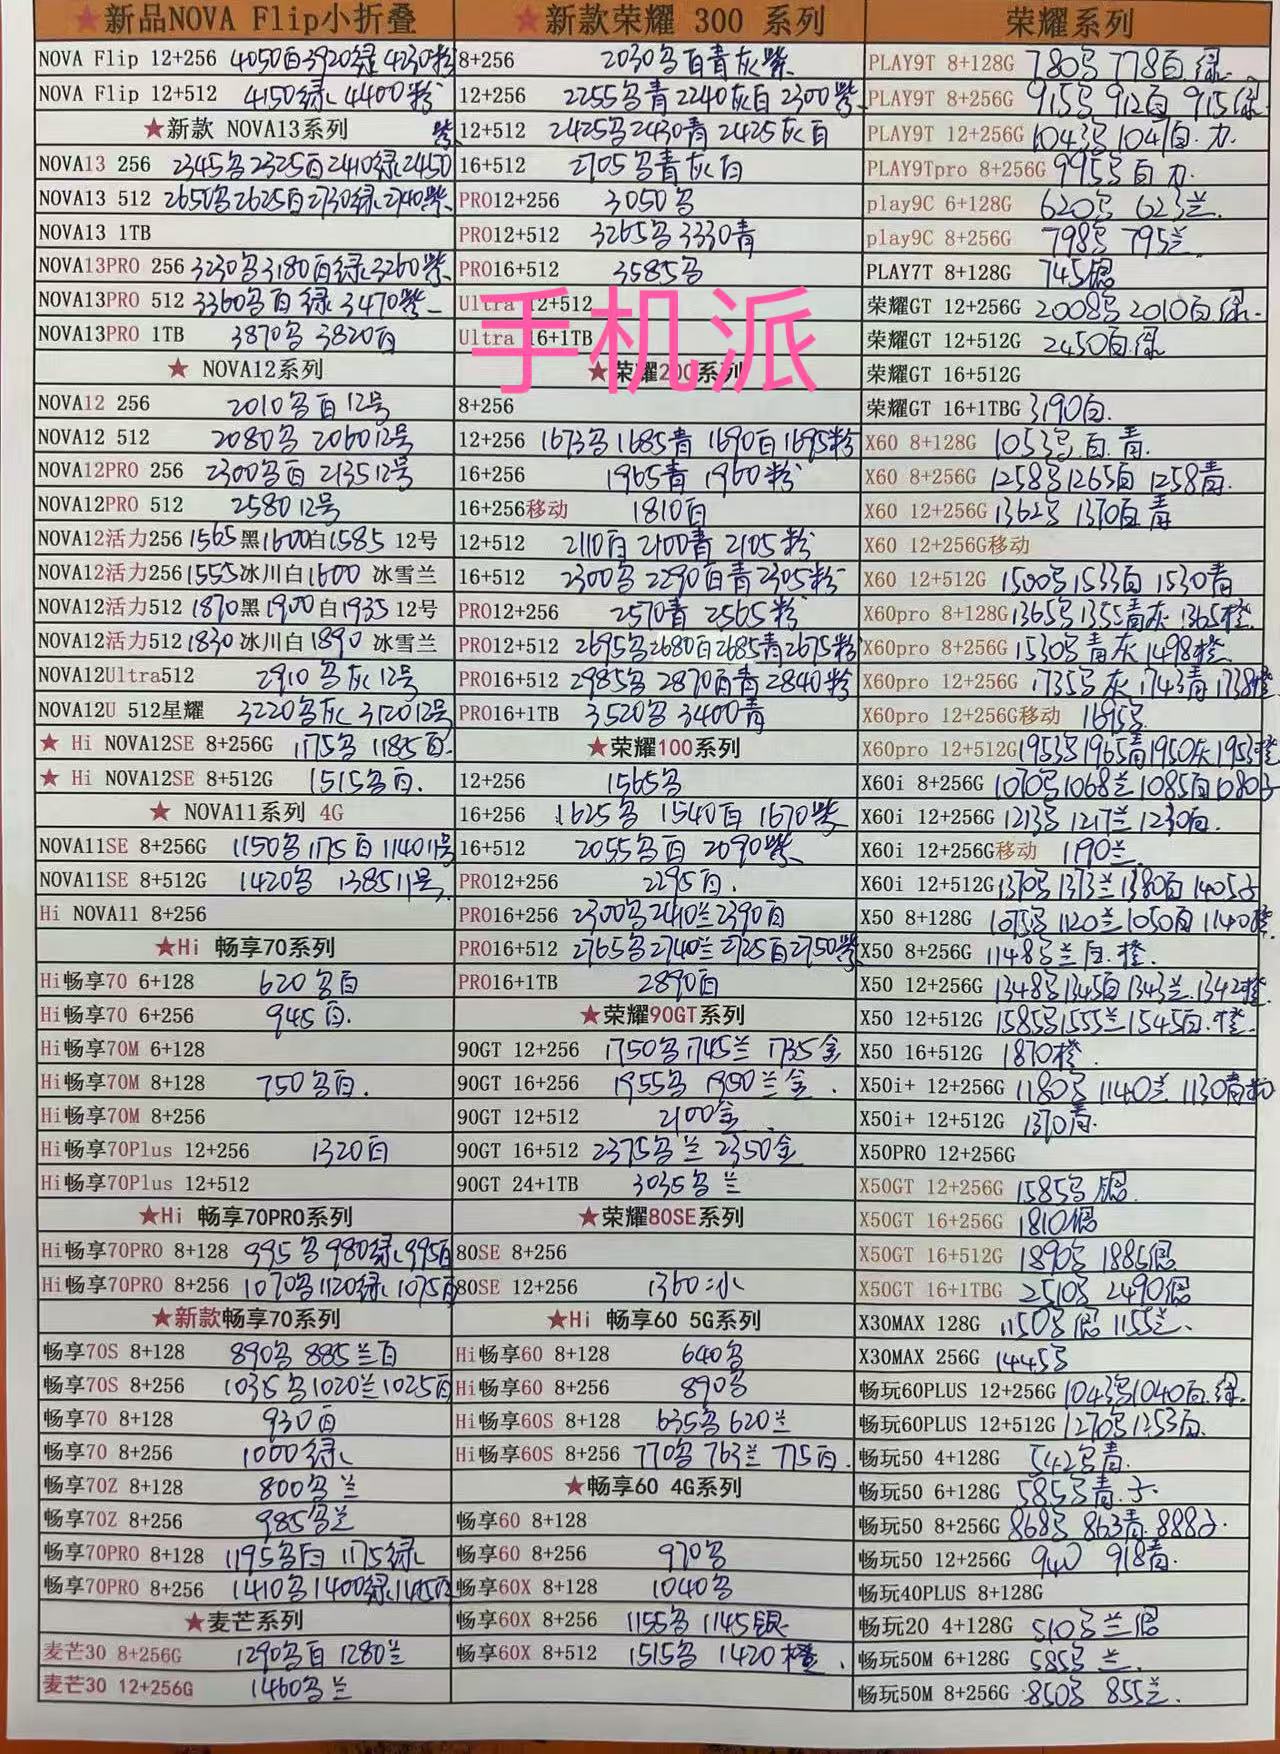 ★新品NOVA Flip小折叠
NOVA Flip 12+256 4050白3920绿4230粉
NOVA Flip 12+512 4150绿 4400粉
★新款 NOVA13系列
NOVA13 256 2345黑2325白2410绿2450紫
NOVA13 512 2650黑2625白2730绿2740紫
NOVA13 1TB
NOVA13PRO 256 3230黑3180白绿3260紫
NOVA13PRO 512 3360黑白绿3470紫
NOVA13PRO 1TB 3870黑 3820白
★ NOVA12系列
NOVA12 256 2010黑白12号
NOVA12 512 2080黑 2060 12号
NOVA12PRO 256 2300黑白 2135 12号
NOVA12PRO 512 2580 12号
NOVA12活力256 1565黑1600白1585 12号
NOVA12活力256 1555冰川白1600 冰雪兰
NOVA12活力512 1870黑1900白1935 12号
NOVA12活力512 1830冰川白1890 冰雪兰
NOVA12Ultra512 2910黑灰12号
NOVA12U 512星耀 3220黑灰3120 12号
★ Hi NOVA12SE 8+256G 1175黑 1185白.
★ Hi NOVA12SE 8+512G 1515黑白.
★ NOVA11系列 4G
NOVA11SE 8+256G 1150黑1175白1140 11号
NOVA11SE 8+512G 1420黑 1385 11号
Hi NOVA11 8+256
★Hi 畅享70系列
Hi畅享70 6+128 620黑白
Hi畅享70 6+256 945白.
Hi畅享70M 6+128
Hi畅享70M 8+128 750黑白.
Hi畅享70M 8+256
Hi畅享70Plus 12+256 1320白
Hi畅享70Plus 12+512
★Hi 畅享70PRO系列
Hi畅享70PRO 8+128 995黑980绿995白
Hi畅享70PRO 8+256 1070黑1120绿1075白
★新款畅享70系列
畅享70S 8+128 890黑885兰白
畅享70S 8+256 1035黑1020兰1025白
畅享70 8+128 930白
畅享70 8+256 1000绿
畅享70Z 8+128 800黑兰
畅享70Z 8+256 985黑兰
畅享70PRO 8+128 1195黑白 1175绿
畅享70PRO 8+256 1410黑1400绿1145白
★麦芒系列
麦芒30 8+256G 1290黑白 1280兰
麦芒30 12+256G 1460黑兰
★新款荣耀 300 系列
8+256 2030黑白青灰紫
12+256 2255黑青2240灰白2300紫
12+512 2425黑2430青2425灰白
16+512 2705黑青灰白
PRO12+256 3050黑
PRO12+512 3265黑3330青
PRO16+512 3585黑
Ultra 12+512
Ultra 16+1TB
手机派
★荣耀200系列
8+256
12+256 1673黑1685青1690白1695粉
16+256 1965青 1960粉
16+256移动 1810白
12+512 2110白2100青2105粉
16+512 2300黑2290白青2305粉
PRO12+256 2570青 2565粉
PRO12+512 2695黑2680白2685青2675粉
PRO16+512 2985黑2870白青2840粉
PRO16+1TB 3520黑3400青
★荣耀100系列
12+256 1565黑
16+256 1625黑 1540白 1670紫
16+512 2055黑白 2090紫
PRO12+256 2295白.
PRO16+256 2300黑2410兰2390白
PRO16+512 2765黑2740兰2725白2750紫
PRO16+1TB 2890白
★荣耀90GT系列
90GT 12+256 1750黑1745兰1735金
90GT 16+256 1955黑1950兰金.
90GT 12+512 2100金
90GT 16+512 2375黑兰2350金
90GT 24+1TB 3035黑兰
★荣耀80SE系列
80SE 8+256
80SE 12+256 1360冰
★Hi 畅享60 5G系列
Hi畅享60 8+128 640黑
Hi畅享60 8+256 890黑
Hi畅享60S 8+128 635黑620兰
Hi畅享60S 8+256 770黑763兰775白.
★畅享60 4G系列
畅享60 8+128
畅享60 8+256 970黑
畅享60X 8+128 1040黑
畅享60X 8+256 1155黑1145银
畅享60X 8+512 1515黑 1420橙.
荣耀系列
PLAY9T 8+128G 780黑778白绿
PLAY9T 8+256G 915黑912白915绿
PLAY9T 12+256G 1043黑1041白.力.
PLAY9Tpro 8+256G 995黑白力.
play9C 6+128G 620黑 623兰.
play9C 8+256G 798黑795兰.
PLAY7T 8+128G 745银
荣耀GT 12+256G 2008黑2010白绿.
荣耀GT 12+512G 2450白绿
荣耀GT 16+512G
荣耀GT 16+1TBG 3190白.
X60 8+128G 1053黑白青.
X60 8+256G 1258黑1265白1258青.
X60 12+256G 1362黑 1370白青
X60 12+256G移动
X60 12+512G 1500黑1533白1530青
X60pro 8+128G 1365黑1355青灰1365橙.
X60pro 8+256G 1530黑青灰1498橙.
X60pro 12+256G 1735黑灰1743青1738橙
X60pro 12+256G移动 1695黑
X60pro 12+512G 1953黑1965青1950灰1953橙
X60i 8+256G 1070黑1068兰1085白1080子
X60i 12+256G 1213黑1217兰1230白.
X60i 12+256G移动 1190兰.
X60i 12+512G 1370黑1373兰1380白1405子
X50 8+128G 1075黑1120兰1050白1140橙
X50 8+256G 1148黑兰白.橙.
X50 12+256G 1348黑1345白1343兰.1342橙.
X50 12+512G 1585黑1555兰1545白.橙.
X50 16+512G 1870橙.
X50i+ 12+256G 1180黑1140兰1130青粉
X50i+ 12+512G 1370青.
X50PRO 12+256G
X50GT 12+256G 1585黑银.
X50GT 16+256G 1810银
X50GT 16+512G 1890黑1885银
X50GT 16+1TBG 2510黑2490银
X30MAX 128G 1150黑银1155兰.
X30MAX 256G 1445黑
畅玩60PLUS 12+256G 1043黑1040白.绿.
畅玩60PLUS 12+512G 1270黑1253白.
畅玩50 4+128G 542黑青.
畅玩50 6+128G 585黑青.子.
畅玩50 8+256G 868黑 863青.888子.
畅玩50 12+256G 940 918青.
畅玩40PLUS 8+128G
畅玩20 4+128G 510黑兰银
畅玩50M 6+128G 585黑 兰.
畅玩50M 8+256G 850黑 855兰.